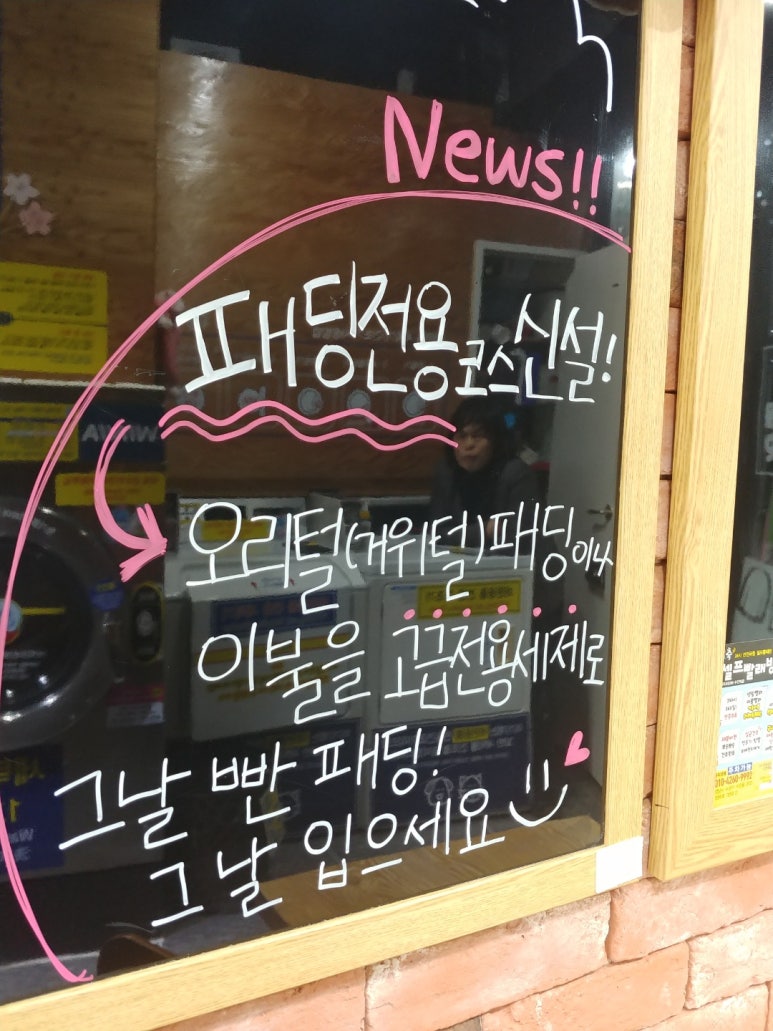 News!!
패딩전용코스신설!
오리털(거위털)패딩이나
이불을 고급전용세제로
그날 빤 패딩!
그날 입으세요
셀프빨래방
010-6260-9992